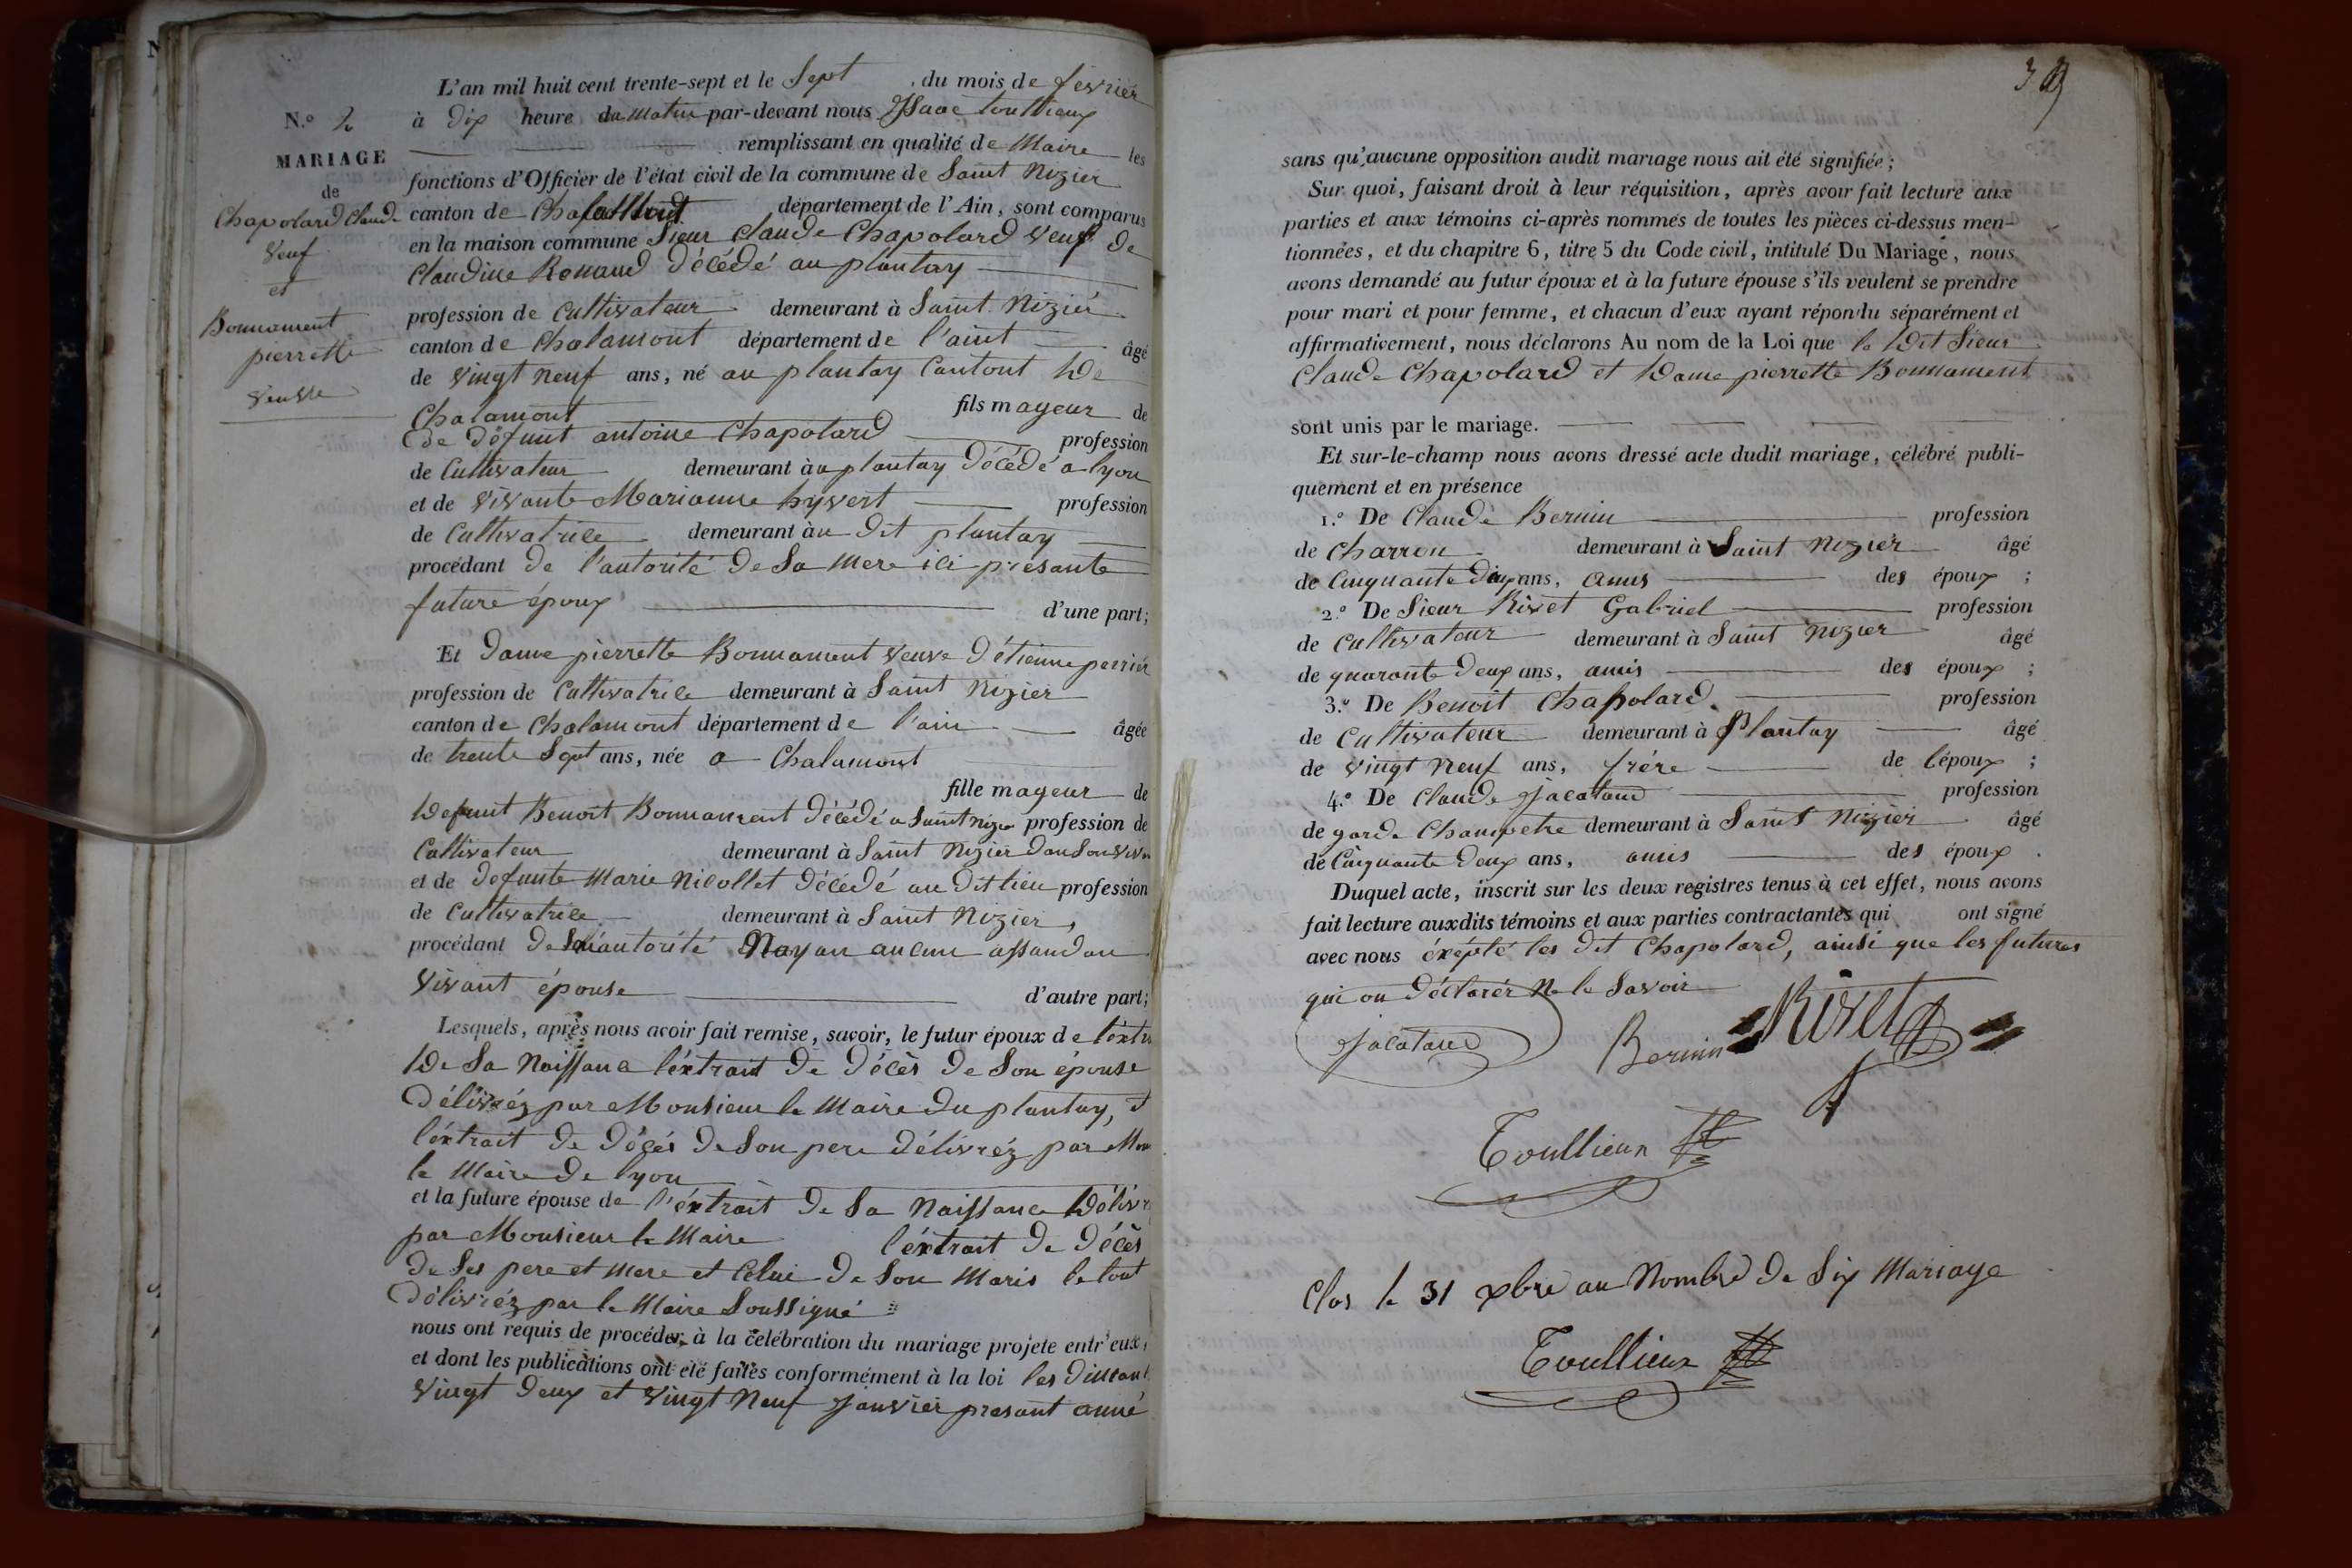 N.º 2
MARIAGE
de
Chapolard Claude
veuf
et
Bonnament
pierrette
veuve
L'an mil huit cent trente-sept et le Sept du mois de février
à dix heure du matin par-devant nous Isaac toullieux
remplissant en qualité de Maire les
fonctions d'Officier de l'état civil de la commune de Saint Nizier
canton de département de l'Ain, sont comparus
en la maison commune Sieur Claude Chapolard veuf de
Claudine Renaud décédé au plantay
profession de Cultivateur demeurant à Saint Nizier
canton de Chalamont département de l'aint âgé
de vingt neuf ans, né au plantay Cantont De
Chalamont fils mayeur de
de défunt antoine Chapolard profession
de Cultivateur demeurant àu plantay décédé a lyon
et de vivante Marianne hyvert profession
de Cultivatrice demeurant àu dit plantay
procédant de l'autorité de Sa mere ici présante
future époux d'une part;
Et dame pierrette Bonnament veuve d'étienne perrier
profession de Cultivatrice demeurant à Saint Nizier
canton de Chalamont département de l'ain âgée
de trente Sept ans, née a Chalamont
fille mayeur de
Defunt Benoit Bonnament décédé a Saint nizier profession de
Cultivateur demeurant à Saint Nizier dan Son viv
et de defunte Marie Nicollet décédé au dit lieu profession
de Cultivatrice demeurant à Saint Nizier,
procédant de autorité Nayan aucun assandan
vivant épouse d'autre part;
Lesquels, après nous avoir fait remise, savoir, le futur époux de l'extr
De Sa Naissance l'éxtrait de décès de Son épouse
délivréz par Monsieur le Maire du plantay, et
l'éxtrait de décès de Son pere délivréz par Mon
le Maire de lyon
et la future épouse de l'éxtrait de Sa Naissance Délivr
par Monsieur le Maire l'éxtrait de décès
de Ses pere et mere et Celui de Son Maris le tout
délivréz par le Maire Soussigné
nous ont requis de procéder à la célébration du mariage projeté entr'eux,
et dont les publications ont été faites conformément à la loi les
vingt deux et vingt Neuf Janvier presant anné
39
sans qu'aucune opposition audit mariage nous ait été signifiée;
Sur quoi, faisant droit à leur réquisition, après avoir fait lecture aux
parties et aux témoins ci-après nommés de toutes les pièces ci-dessus men-
tionnées, et du chapitre 6, titre 5 du Code civil, intitulé Du Mariage, nous
avons demandé au futur époux et à la future épouse s'ils veulent se prendre
pour mari et pour femme, et chacun d'eux ayant répondu séparément et
affirmativement, nous déclarons Au nom de la Loi que le Dit Sieur
Claude Chapolard et Dame pierrette Bonnament
sont unis par le mariage.
Et sur-le-champ nous avons dressé acte dudit mariage, célébré publi-
quement et en présence
1.º De Claude Bernin profession
de Charron demeurant à Saint Nizier âgé
de Cinquante ans, amis des époux ;
2.º De Sieur Rivet Gabriel profession
de Cultivateur demeurant à Saint Nizier âgé
de quarante deux ans, amis des époux ;
3.º De Benoit Chapolard profession
de Cultivateur demeurant à Plantay âgé
de vingt Neuf ans, frére de lépoux ;
4.º De Claude Jacataud profession
de garde Champetre demeurant à Saint Nizier âgé
de Cinquante deux ans, amis des époux .
Duquel acte, inscrit sur les deux registres tenus à cet effet, nous avons
fait lecture auxdits témoins et aux parties contractantes qui ont signé
avec nous éxépté les dit Chapolard, ainsi que les futures
qui on déclarér Ne le Savoir
Jacataud Bernin Rivet
Toullieux
Clos le 31 xbre au Nombre de Six Mariage
Toullieux